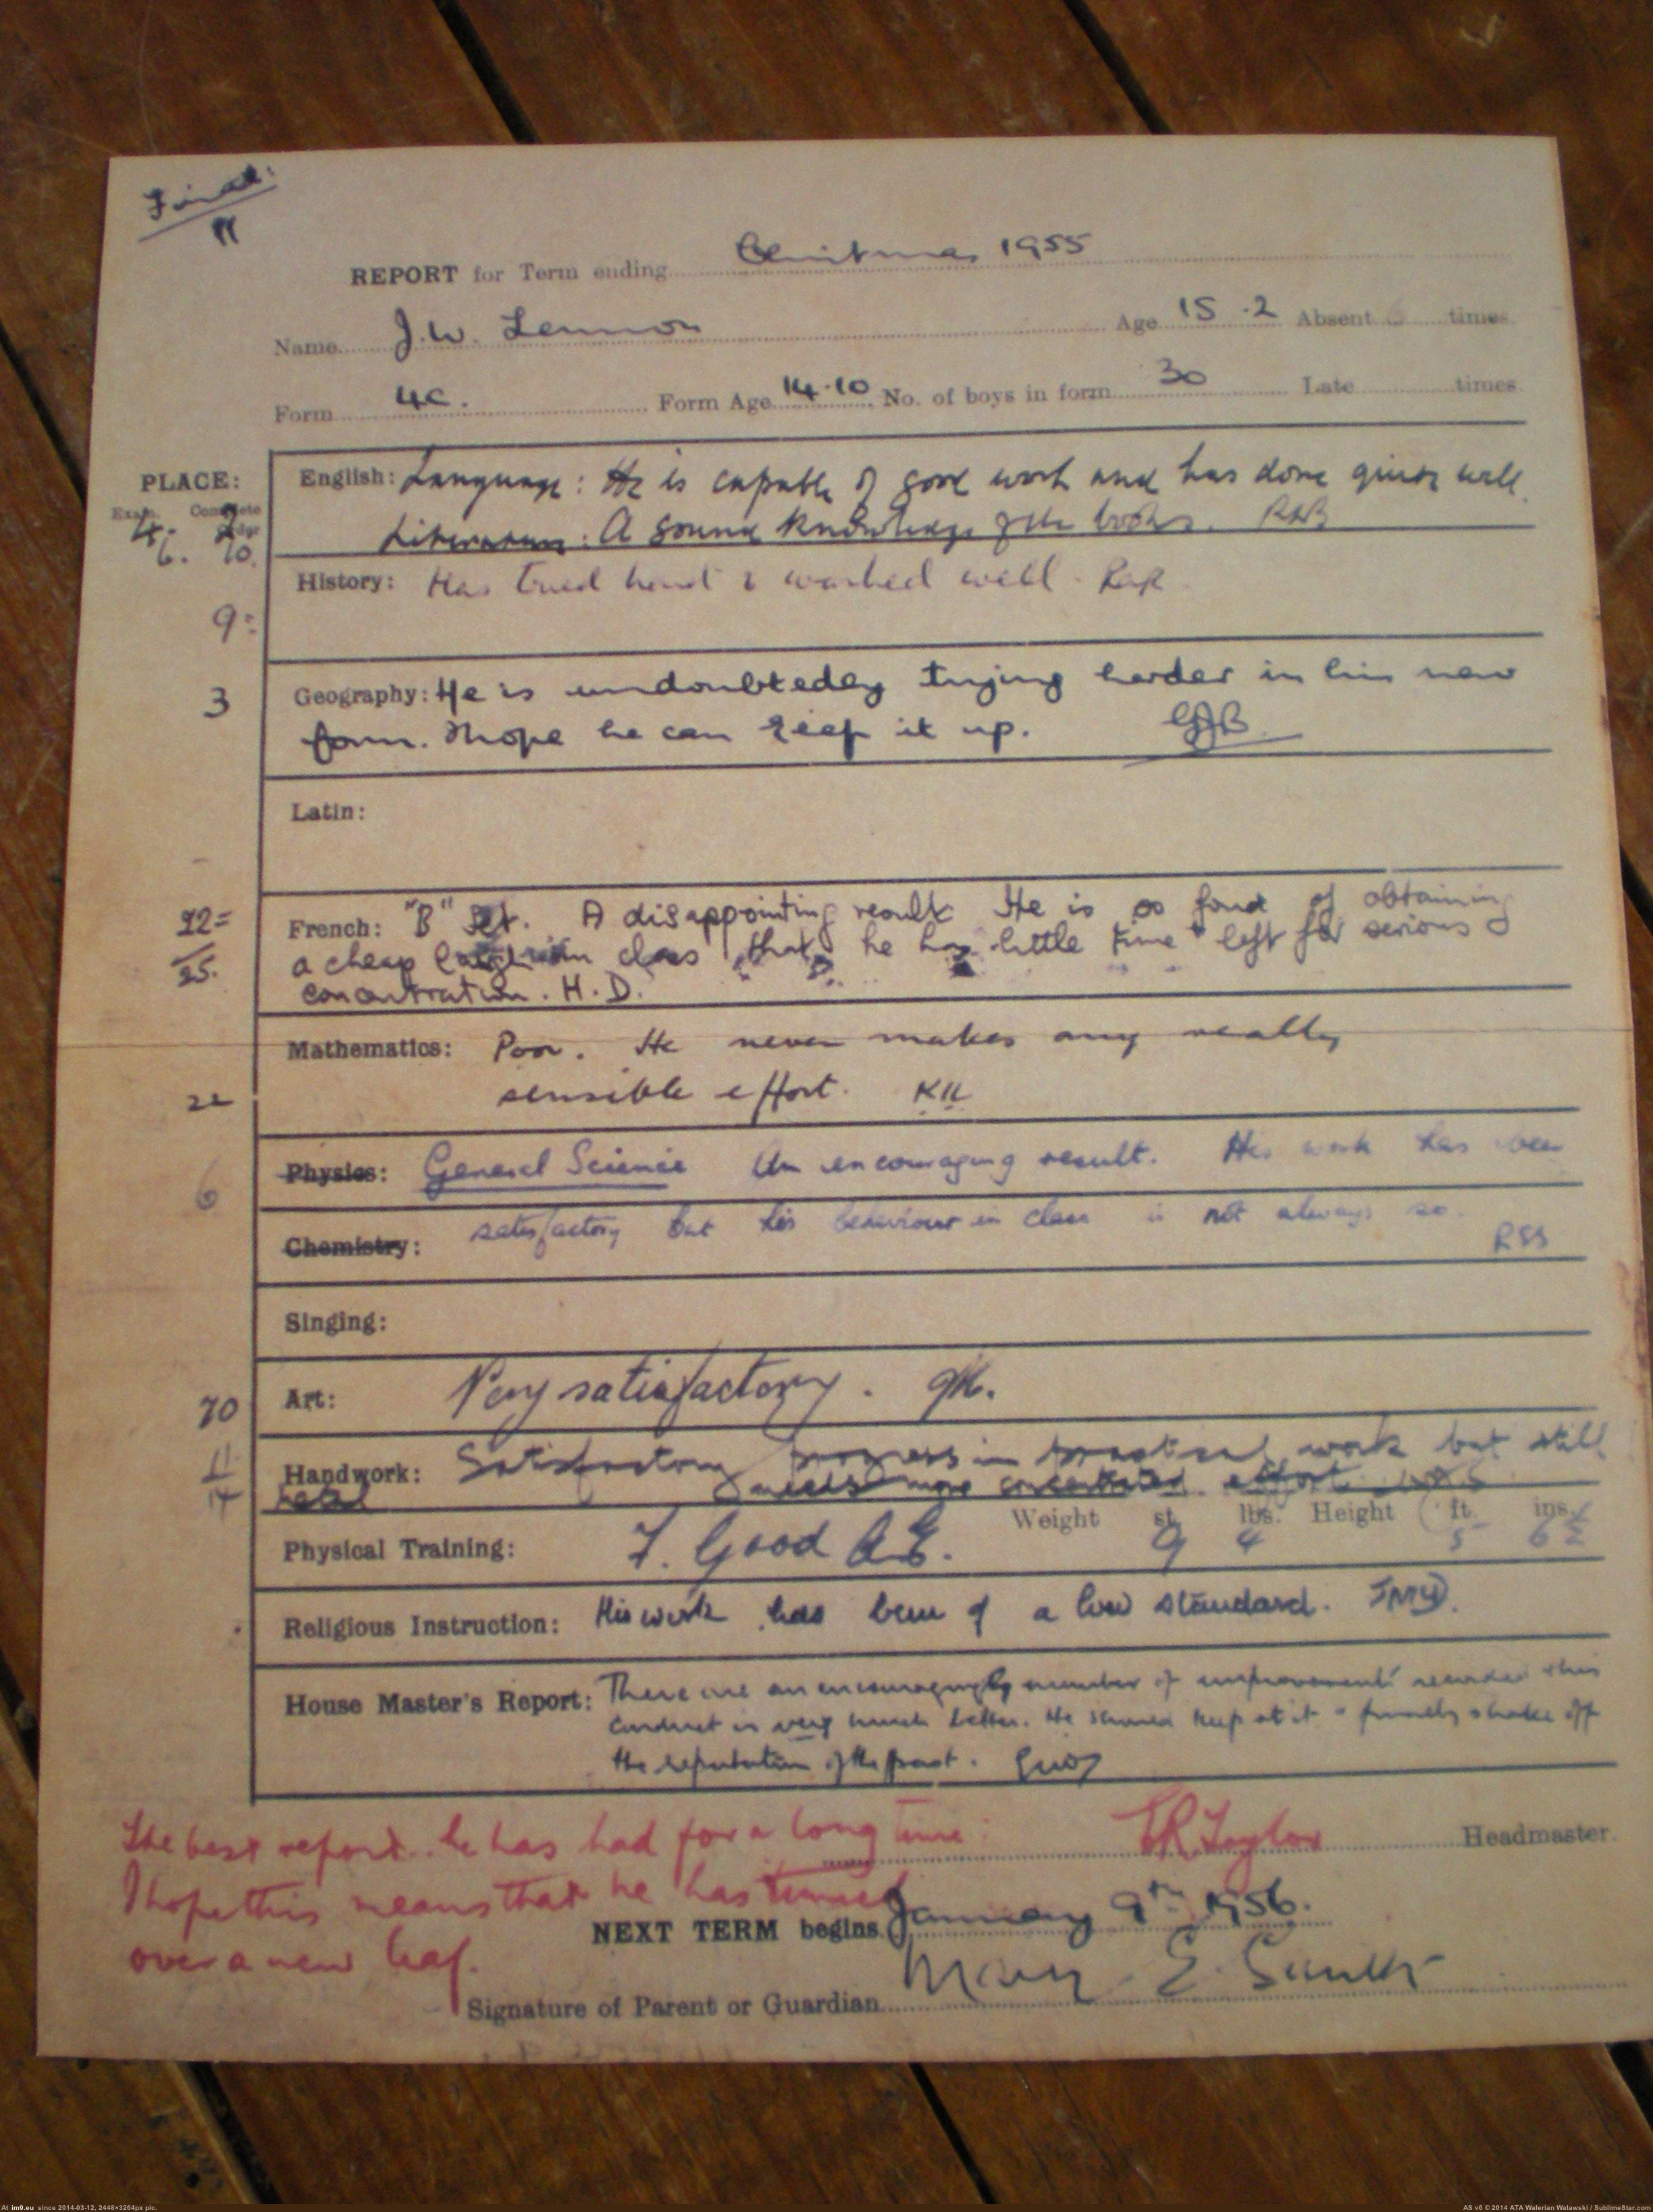 Final:
REPORT for Term ending Christmas 1955
Name J.W. Lennon Age 15.2 Absent times
Form 4C. Form Age 14.10 No. of boys in form 30 Late times
PLACE:
Exam. Complete
4.
6. 10.
English: Language: He is capable of good work and has done quite well.
Literature: A sound knowledge of the books. RAB
History: Has tried hard & worked well.
9=
3
Geography: He is undoubtedly trying harder in his new
form. I hope he can keep it up.
Latin:
12=
25.
French: "B" Set. A disappointing result. He is so fond of obtaining
a cheap in class that he has little time left for serious
concentration. H.D.
Mathematics: Poor. He never makes any really
sensible effort.
22
Physics: General Science An encouraging result. His work has been
6
Chemistry: satisfactory but his behaviour in class is not always so.
RSS
Singing:
Art: Very satisfactory.
Handwork: Satisfactory progress in practical work but still
needs more concentrated effort.
11
14
Weight st. lbs. Height ft. ins.
9 4 5 6½
Physical Training: F. Good
Religious Instruction: His work has been of a low standard.
House Master's Report: There are an encouragingly number of improvements recorded this
conduct is very much better. He should keep at it & finally shake off
the reputation of the past.
The best report he has had for a long time. Headmaster.
I hope this means that he has turned
over a new leaf.
NEXT TERM begins January 9th 1956.
Signature of Parent or Guardian Mary E. Smith
At im9.eu since 2014-03-12, 2448×3264px pic.
AS v6 © 2014 ATA Walerian Walawski / SublimeStar.com